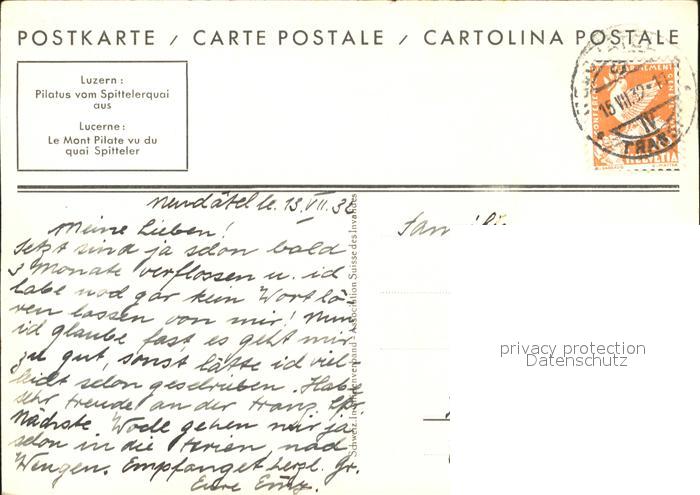 POSTKARTE / CARTE POSTALE / CARTOLINA POSTALE
Luzern:
Pilatus vom Spittelerquai
aus
Lucerne:
Le Mont Pilate vu du
quai Spitteler
15 VII 32
IV
TRAS
HELVETIA
Neuchâtel le. 13. VII. 32
Meine Lieben!
Jetzt sind ja schon bald
3 Monate verflossen u. ich
habe noch gar kein Wort hö-
ren lassen von mir! Nun
ich glaube fast es geht mir
zu gut, sonst hätte ich viel-
leicht schon geschrieben. Habe
sehr Freude an der franz. Spr.
Nächste Woche gehen wir ja
schon in die Ferien, nach
Wengen. Empfanget herzl. Gr.
Eure
Schweiz. Invalidenverband - Association Suisse des Invalides
privacy protection
Datenschutz